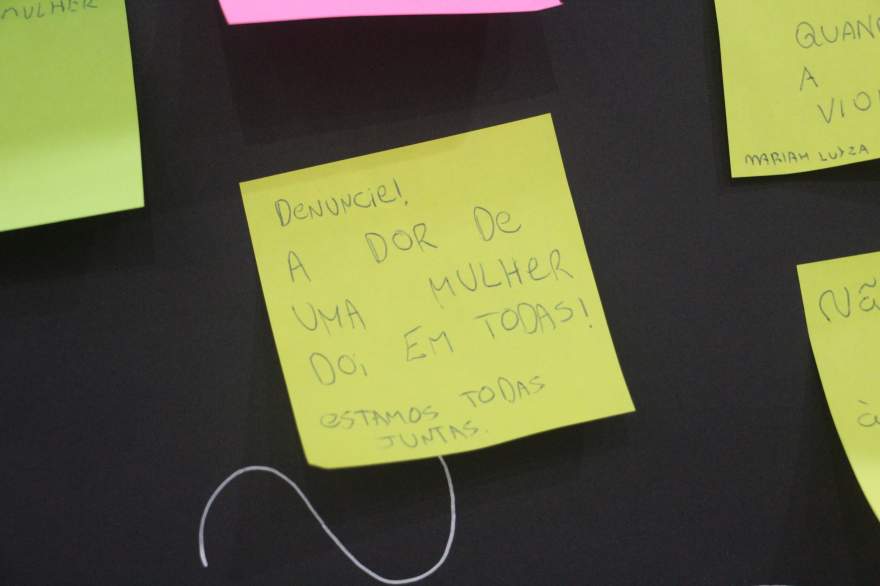 MULHER
QUAN
A
VIO
MARIAH LUIZA
DeNUNcie!
A DOR De
UMA MULHeR
DOi EM TODAS!
eSTAMOS TODAS
JUNTAS.
Nã
à